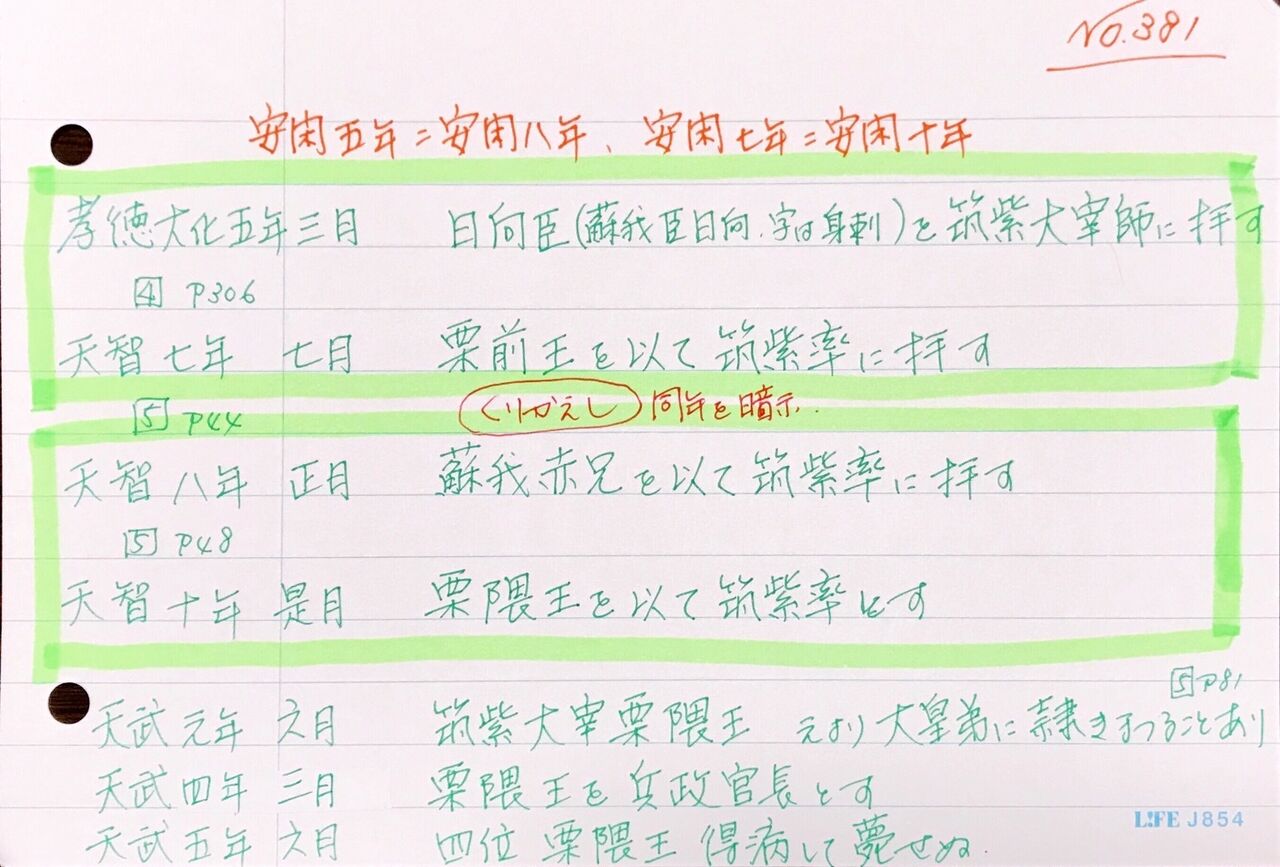 NO.381
安閑五年=安閑八年、安閑七年=安閑十年
孝徳大化五年三月 日向臣(蘇我臣日向、字は身刺)を筑紫大宰師に拝す
4 P306
天智七年 七月 栗前王を以て筑紫率に拝す
5 P44 くりかえし 同年を暗示.
天智八年 正月 蘇我赤兄を以て筑紫率に拝す
5 P48
天智十年 是月 栗隈王を以て筑紫率とす
5 P81
天武元年 六月 筑紫大宰栗隈王 元より大皇弟に隷きまつることあり
天武四年 三月 栗隈王を兵政官長とす
天武五年 六月 四位 栗隈王 得病して薨せぬ
L!FE J854